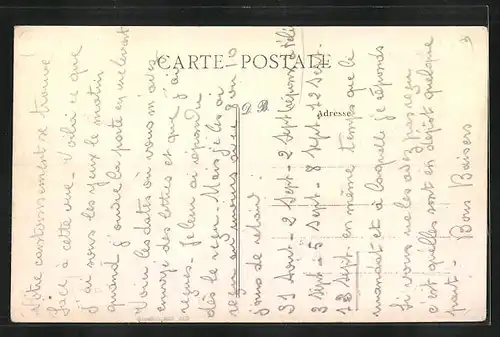 CARTE POSTALE
D. B.
Adresse
Notre cantonnement se trouve
face à cette vue. Voilà ce que
j'ai sous les yeux le matin
quand j'ouvre la porte en me levant
Voici les dates où vous m'avez
envoyé des lettres et que j'ai
reçues. Je leur ai répondu
dès le reçu. Mais je les ai
reçu au moins avec 9 ou 10
jours de retard.
31 Août - 2 Sept - 2 Sept réponse
3 Sept - 5 Sept - 8 Sept - 12 Sept.
13 Sept en même temps que le
mandat et à laquelle je réponds
Si vous ne les avez pas reçu
c'est quelles sont en dépôt quelque
part - Bons Baisers